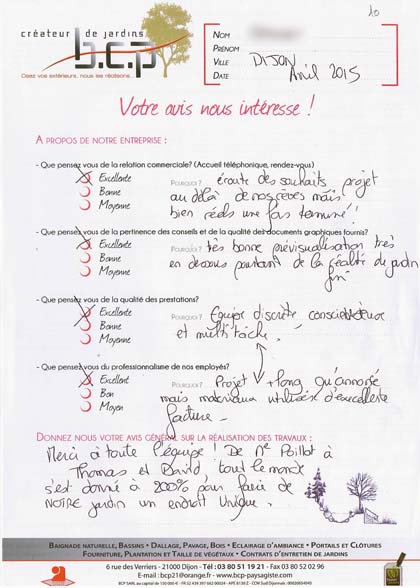 10
créateur de jardins
b.c.p
Osez vos extérieurs, nous les réalisons...
NOM
PRÉNOM
VILLE DIJON
DATE Avril 2015
Votre avis nous intéresse !
A PROPOS DE NOTRE ENTREPRISE :
- Que pensez vous de la relation commerciale? (Accueil téléphonique, rendez-vous)
Excellente POURQUOI ? écoute des souhaits, projet
Bonne au delà de nos rêves mais
Moyenne bien réels une fois terminé !
- Que pensez vous de la pertinence des conseils et de la qualité des documents graphiques fournis?
Excellente POURQUOI ? très bonne prévisualisation très
Bonne en dessous pourtant de la réalité du jardin
Moyenne fini
- Que pensez vous de la qualité des prestations?
Excellente POURQUOI ? Equipe discrète, consciencieuse
Bonne et multitâche.
Moyenne
- Que pensez vous du professionnalisme de nos employés?
Excellent POURQUOI ? Projet + long qu'annoncé
Bon mais matériaux utilisés d'excellente
Moyen facture –
DONNEZ NOUS VOTRE AVIS GÉNÉRAL SUR LA RÉALISATION DES TRAVAUX :
Merci à toute l'équipe ! De Mr Poillot à
Thomas et David, tout le monde
s'est donné à 200% pour faire de
NOTRE jardin un endroit Unique.
BAIGNADE NATURELLE, BASSINS • DALLAGE, PAVAGE, BOIS • ECLAIRAGE D'AMBIANCE • PORTAILS ET CLÔTURES
FOURNITURE, PLANTATION ET TAILLE DE VÉGÉTAUX • CONTRATS D'ENTRETIEN DE JARDINS
6 rue des Verriers - 21000 Dijon - Tél : 03 80 51 19 21 - Fax 03 80 52 02 96
E-mail : bcp21@orange.fr - www.bcp-paysagiste.com